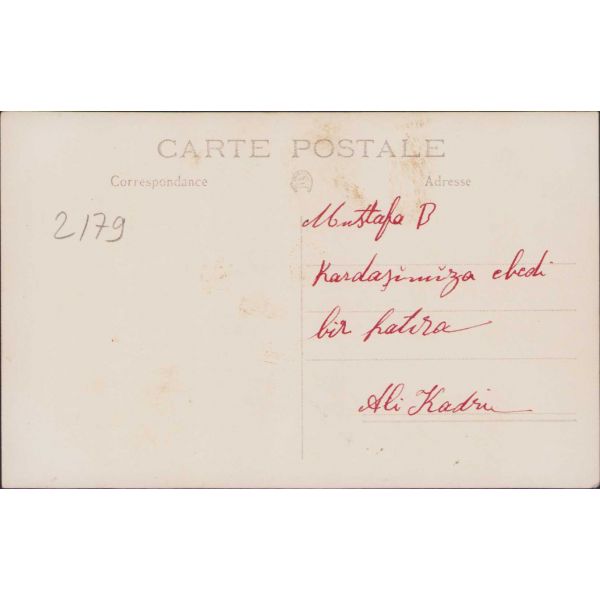 CARTE POSTALE
Correspondance
Adresse
2179
Mustafa B
Kardaşimiza ebedi
bir hatıra
Ali Kadri